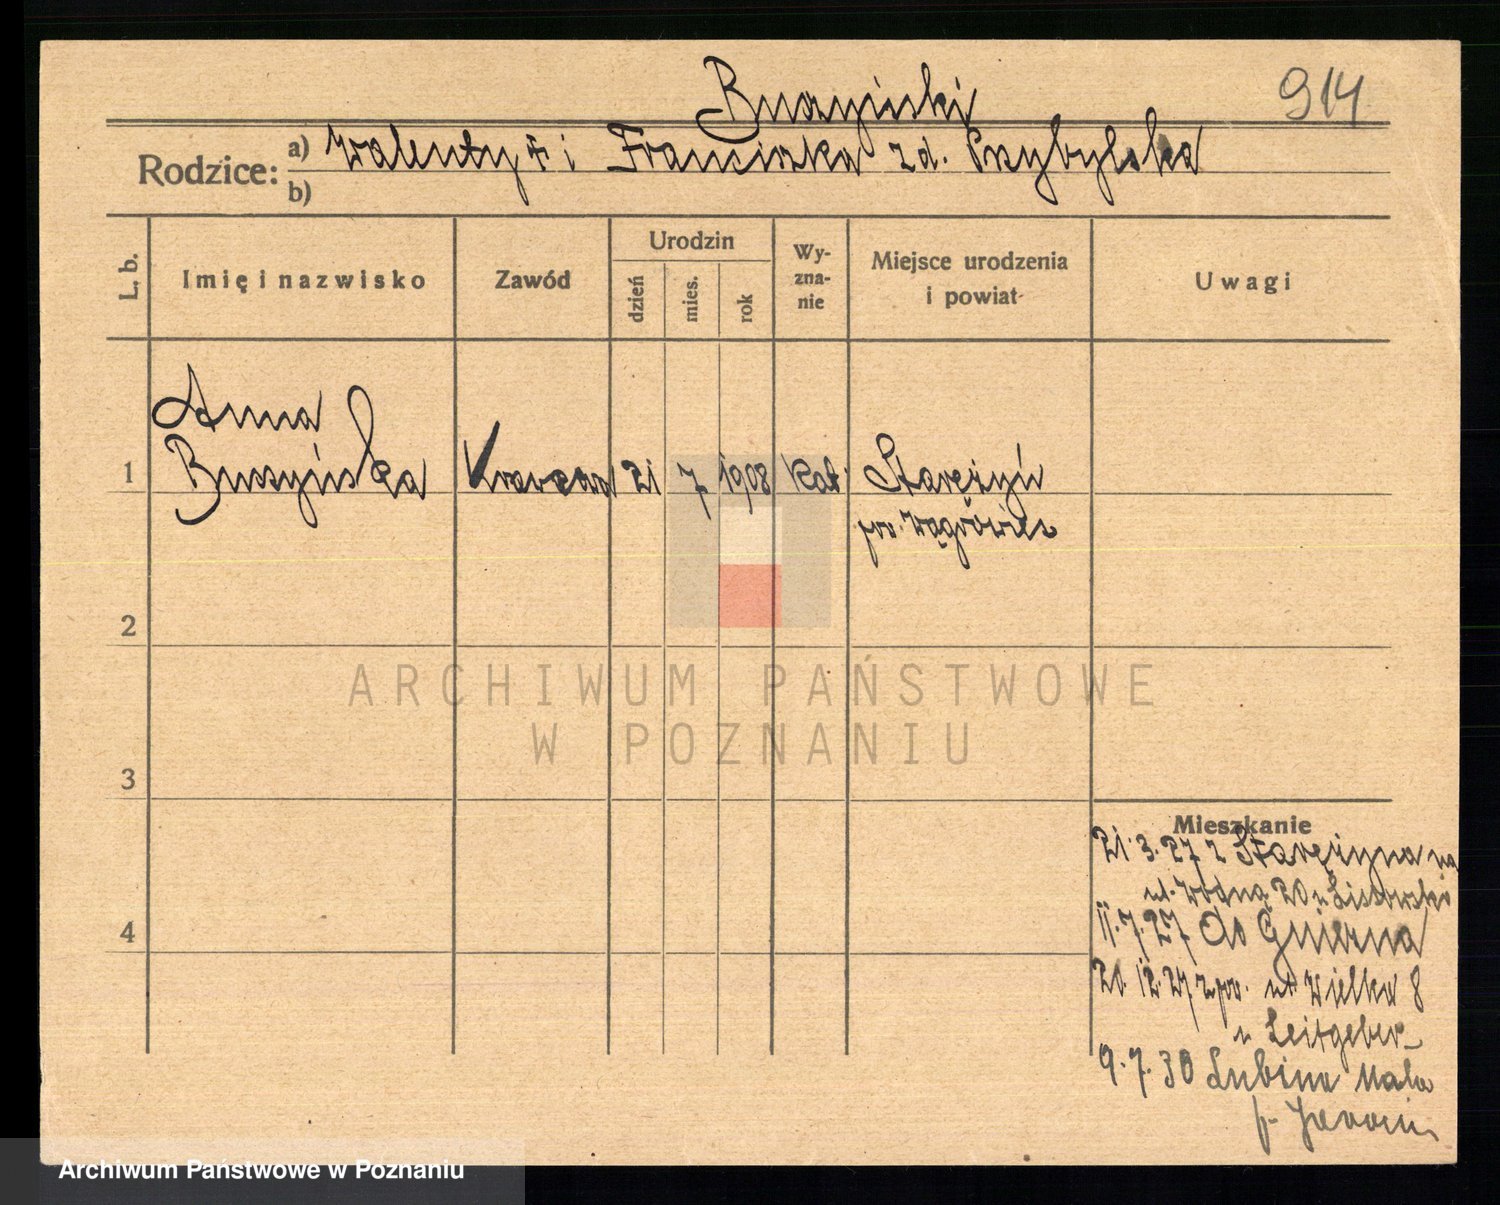 Buszyński
914
Rodzice: a) Walenty † i Franciszka zd. Przybylska
b)
L. b.
Imię i nazwisko
Zawód
Urodzin
dzień
mies.
rok
Wy-
zna-
nie
Miejsce urodzenia
i powiat
Uwagi
Anna
1 Buszyńska 21 7 1908 Kat. Starężyn
pow. Wągrówiec
2
3
4
Mieszkanie
21.3.27 z Starężyna na
ul. Wodną 20 u Lissowski
11.7.27 do Gniezna
20.12.27 z pow. ul. Wielka 8
u Leitgeber
9.7.30 Lubinia Mała
p. Jarocin
ARCHIWUM PAŃSTWOWE
W POZNANIU
Archiwum Państwowe w Poznaniu